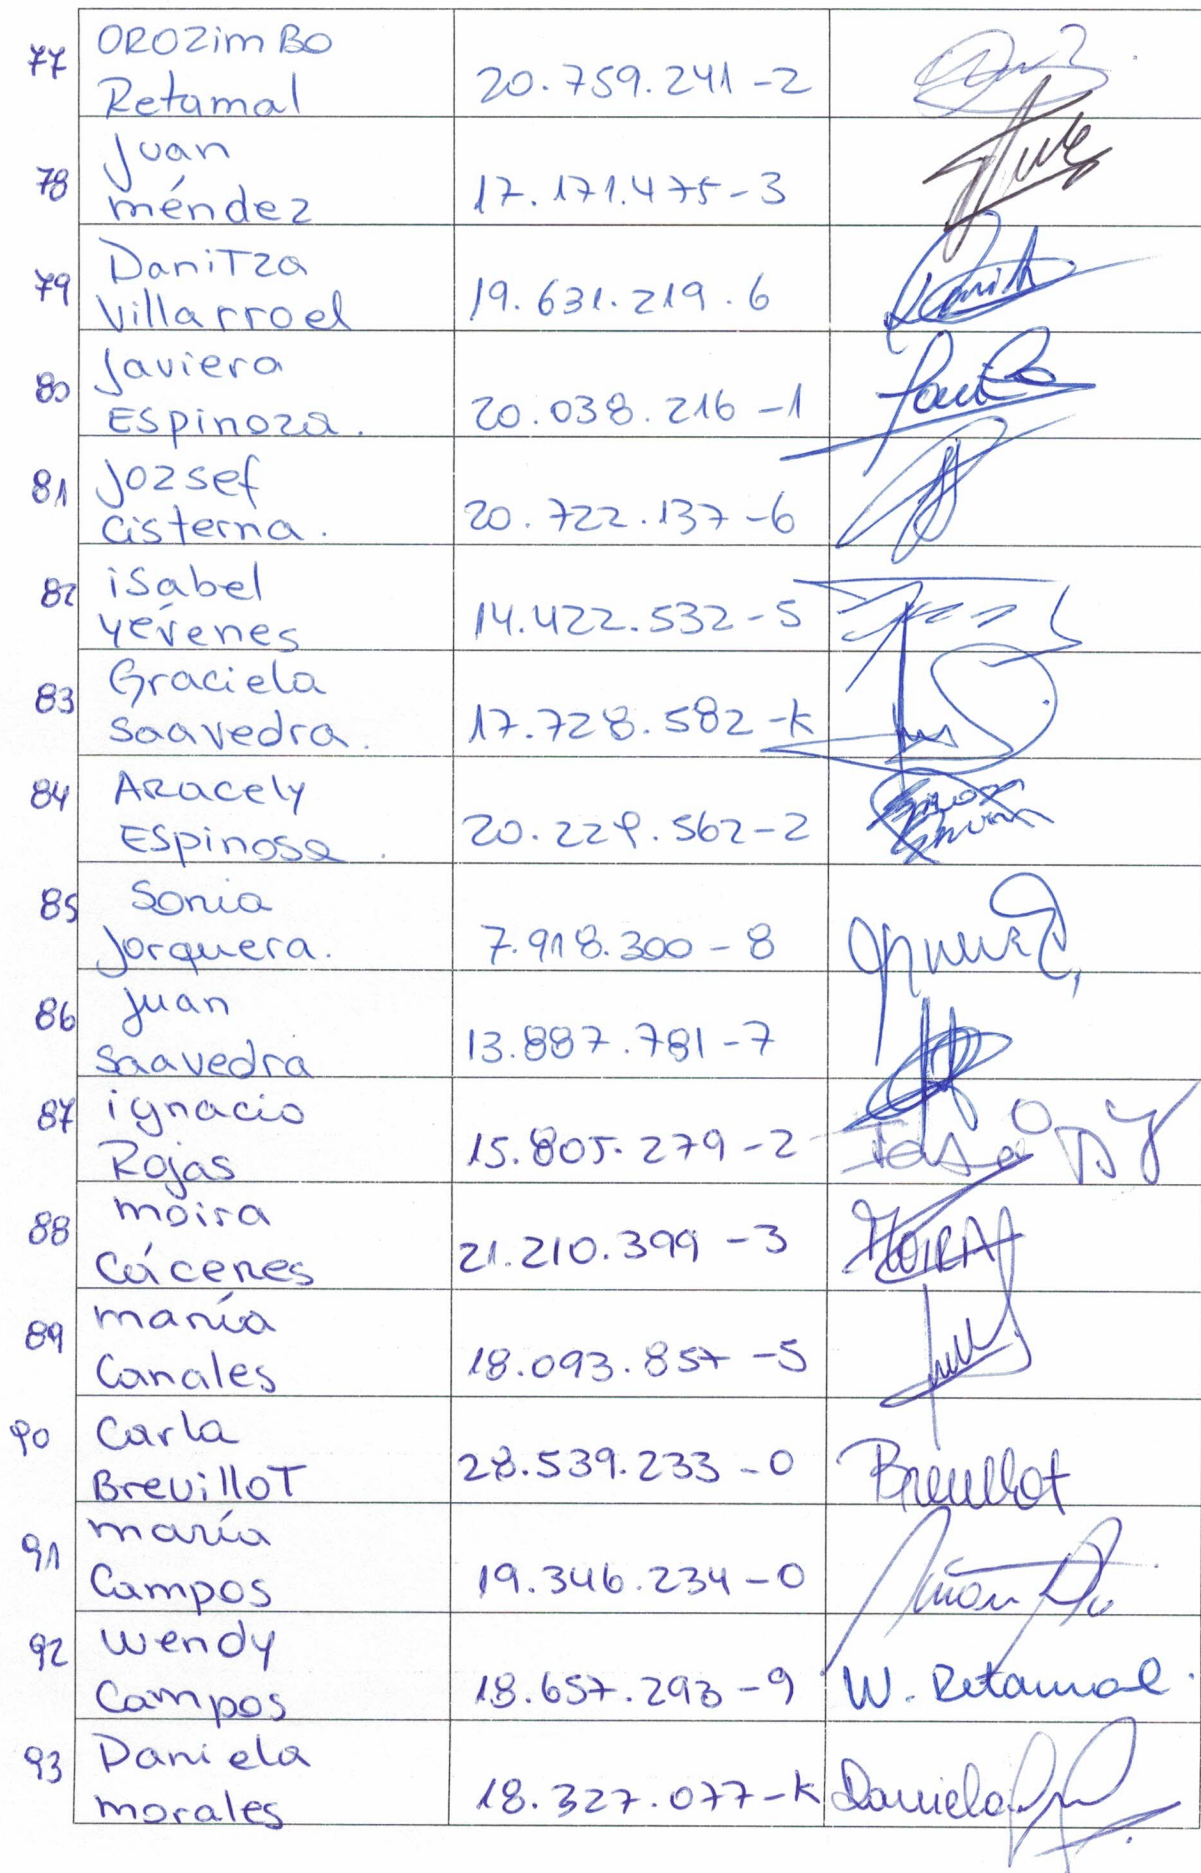 77 OROZimBo
Retamal 20.759.241-2
78 Juan
méndez 17.171.475-3
79 DaniTza
Villarroel 19.631.219.6
80 Javiera
ESpinoza. 20.038.216-1
81 Jozsef
Cisterna. 20.722.137-6
82 iSabel
yévenes 14.422.532-5
83 Graciela
Saavedra. 17.728.582-k
84 ARacely
ESpinosa. 20.229.562-2
85 Sonia
Jorquera. 7.918.300-8
86 Juan
Saavedra 13.887.781-7
87 ignacio
Rojas 15.805.279-2
88 moira
Cáceres 21.210.399-3
MOIRA
89 maría
Canales 18.093.857-5
90 Carla
BrevilloT 28.539.233-0 Brevillot
91 maría
Campos 19.346.234-0
92 Wendy
Campos 18.657.293-9 W. Retamal.
93 Daniela
morales 18.327.077-k Daniela